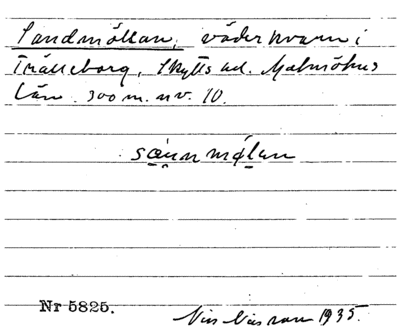 Sandmöllan, väderkvarn i
Trälleborg, Skytts hd. Malmöhus
län. 300 m. nv. 10.
sa̤nnmø̤lan
Nr 5825.
1935.